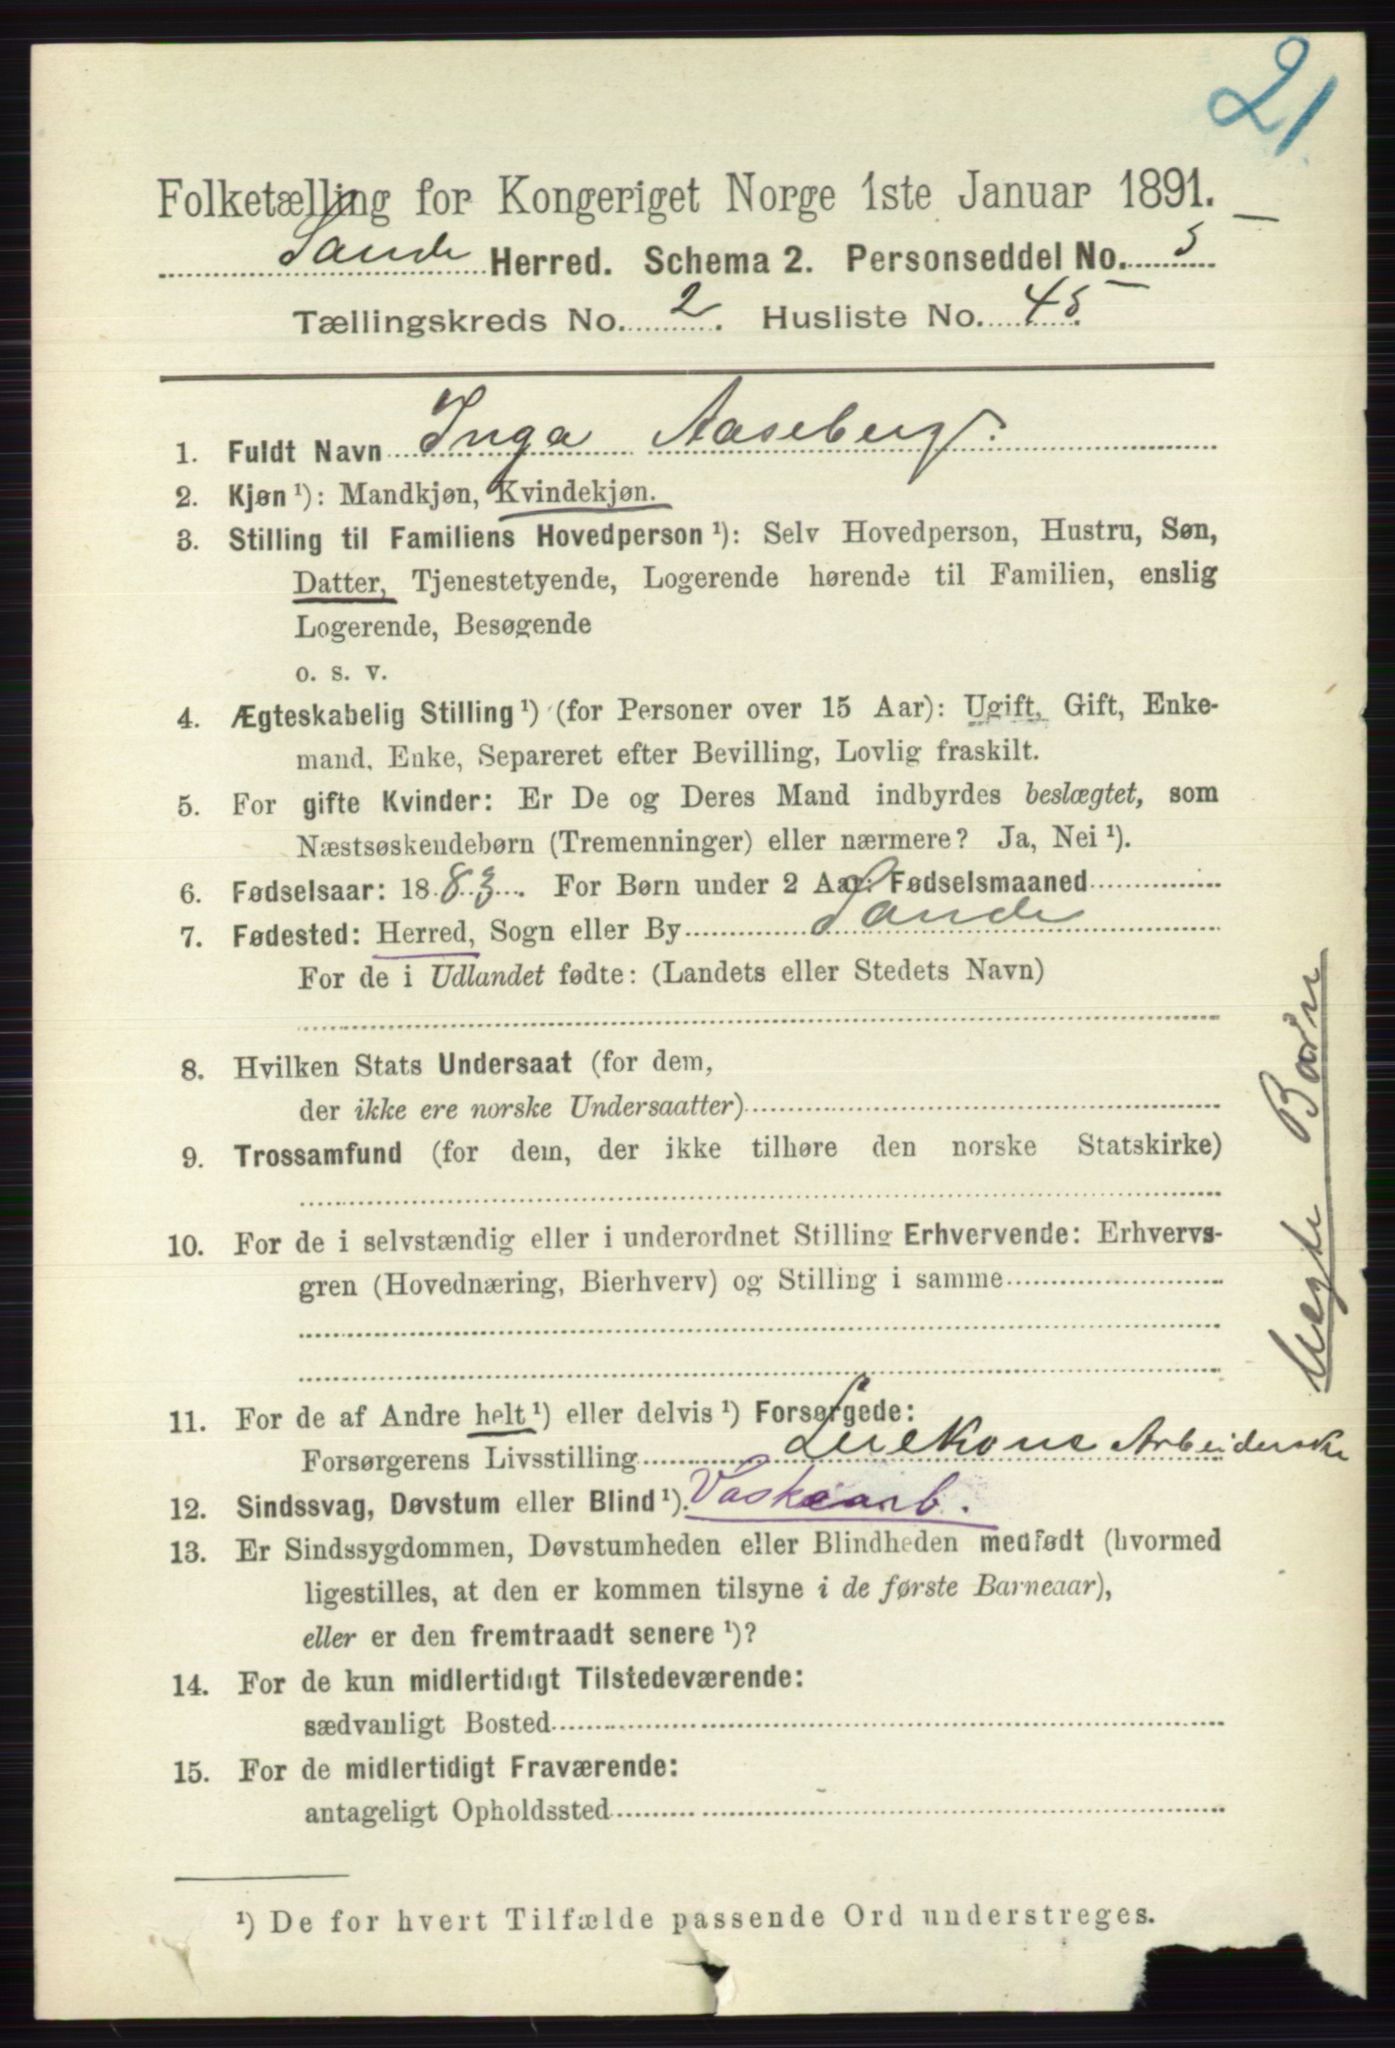 21
Folketælling for Kongeriget Norge 1ste Januar 1891.
Sande Herred. Schema 2. Personseddel No. 5
Tællingskreds No. 2. Husliste No. 45.
1. Fuldt Navn Inga Aaseberg.
2. Kjøn ¹): Mandkjøn, Kvindekjøn.
3. Stilling til Familiens Hovedperson ¹): Selv Hovedperson, Hustru, Søn,
Datter, Tjenestetyende, Logerende hørende til Familien, enslig
Logerende, Besøgende
o. s. v.
4. Ægteskabelig Stilling ¹) (for Personer over 15 Aar): Ugift, Gift, Enke-
mand, Enke, Separeret efter Bevilling, Lovlig fraskilt.
5. For gifte Kvinder: Er De og Deres Mand indbyrdes beslægtet, som
Næstsøskendebørn (Tremenninger) eller nærmere? Ja, Nei ¹).
6. Fødselsaar: 1883. For Børn under 2 Aar: Fødselsmaaned
7. Fødested: Herred, Sogn eller By Sande
For de i Udlandet fødte: (Landets eller Stedets Navn)
8. Hvilken Stats Undersaat (for dem,
der ikke ere norske Undersaatter)
9. Trossamfund (for dem, der ikke tilhøre den norske Statskirke)
10. For de i selvstændig eller i underordnet Stilling Erhvervende: Erhvervs-
gren (Hovednæring, Bierhverv) og Stilling i samme
11. For de af Andre helt ¹) eller delvis ¹) Forsørgede:
Forsørgerens Livsstilling Leiekone Arbeiderske
12. Sindssvag, Døvstum eller Blind ¹). Vaskearb.
13. Er Sindssygdommen, Døvstumheden eller Blindheden medfødt (hvormed
ligestilles, at den er kommen tilsyne i de første Barneaar),
eller er den fremtraadt senere ¹)?
14. For de kun midlertidigt Tilstedeværende:
sædvanligt Bosted
15. For de midlertidigt Fraværende:
antageligt Opholdssted
¹) De for hvert Tilfælde passende Ord understreges.
Uegte Barn